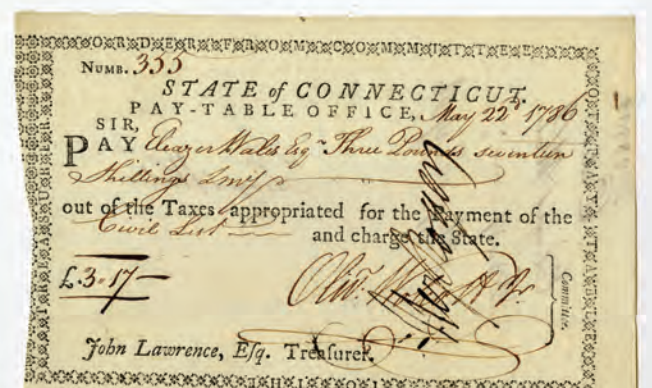 ORDER FROM COMMITTEE
NUMB. 355
STATE of CONNECTICUT.
PAY-TABLE OFFICE, May 22d 1786
SIR,
PAY Eleazer Wales Esqr Three Pounds seventeen
Shillings Lmy
out of the Taxes appropriated for the Payment of the
Civil List and charge the State.
£.3-17-
Olivr Wolcott Jr
Committee.
John Lawrence, Esq. Treasurer.